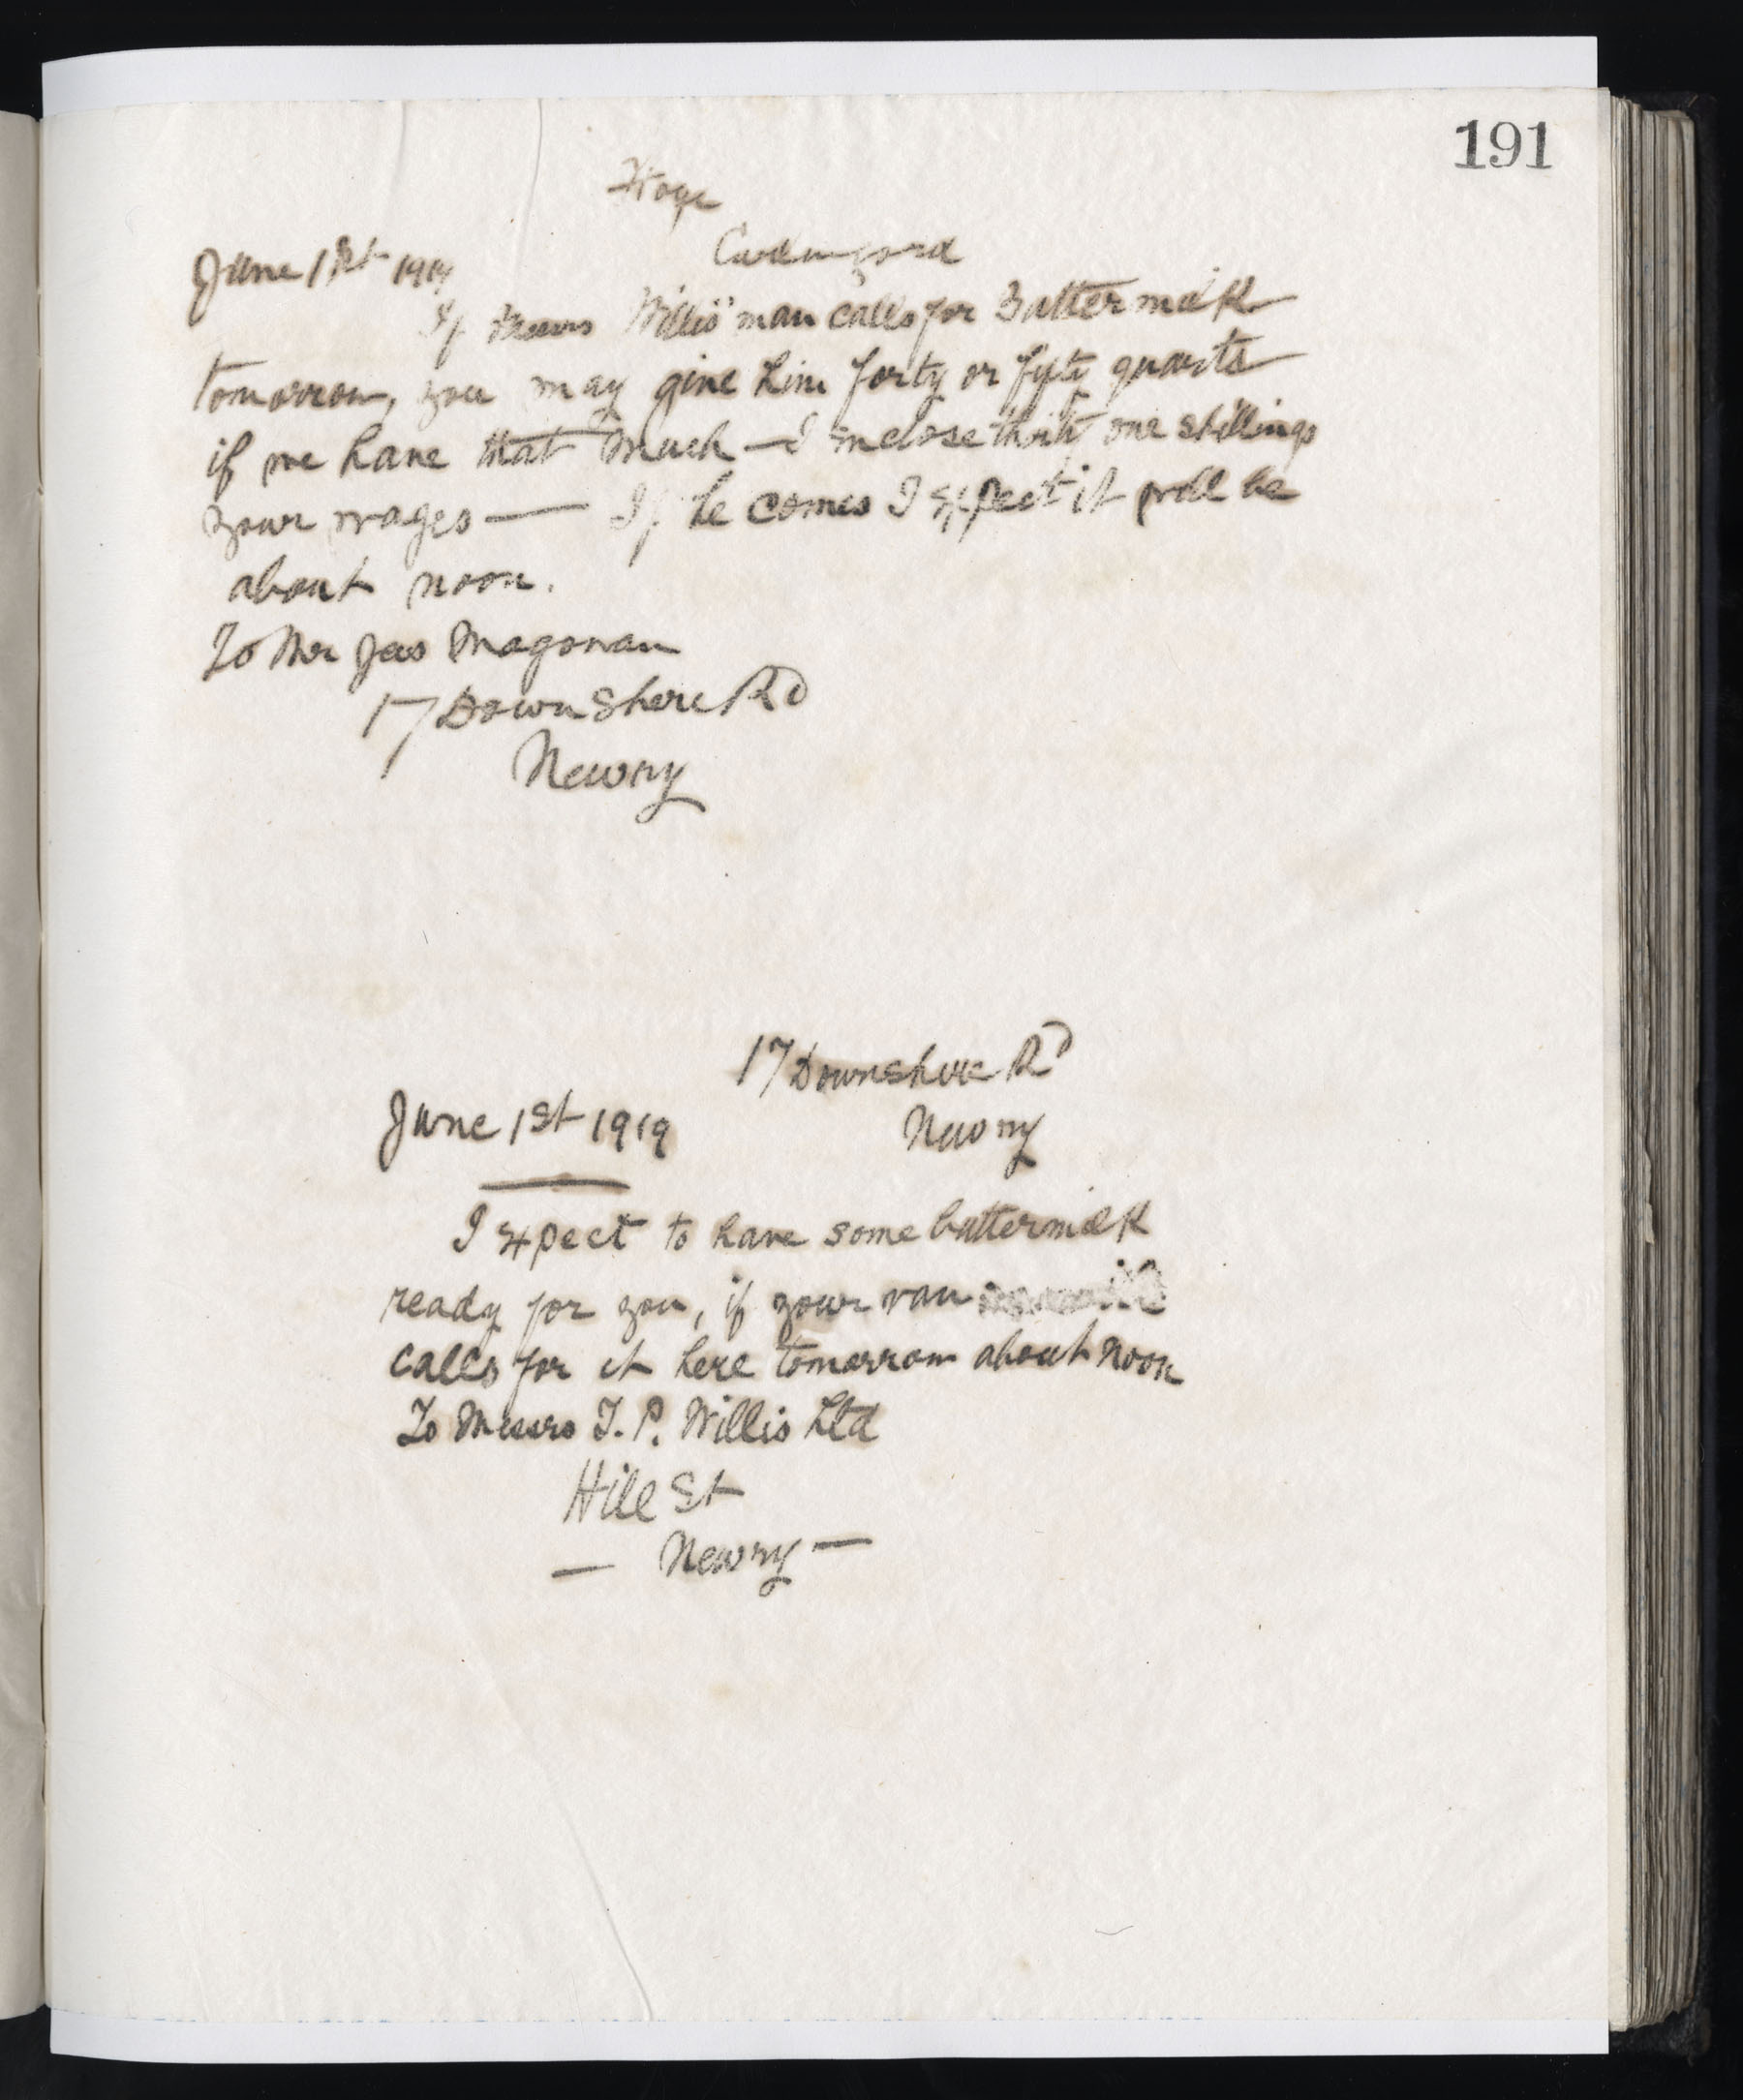 191
June 1st 1919
If Messrs Willis' man calls for Buttermilk
tomorrow, you may give him forty or fifty quarts
if we have that much — I inclose thirty one shillings
your wages — If he comes I expect it will be
about noon.
To Mr Jas Magowan
17 Downshere Rd
Newry
17 Downshire Rd
June 1st 1919 Newry
I expect to have some buttermilk
ready for you, if your van
calls for it here tomorrow about noon
To Messrs T. P. Willis Ltd
Hill St
— Newry —